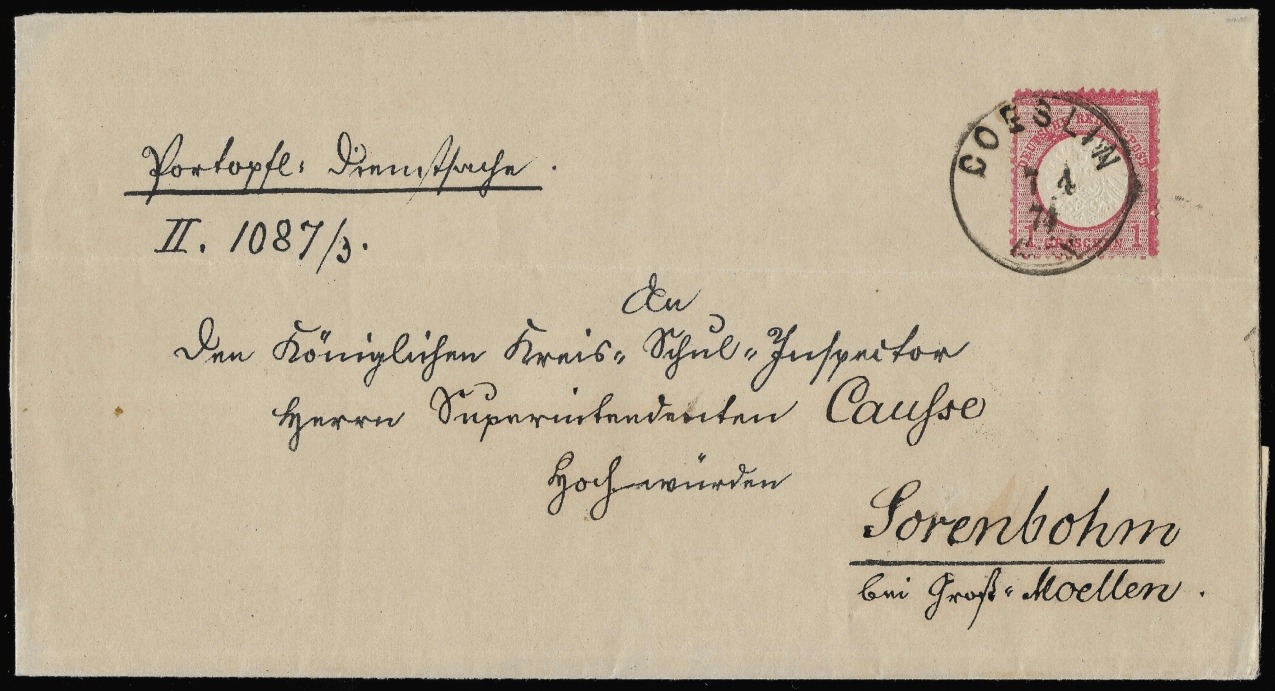 Portopfl: Dienstsache.
II. 1087/3.
COESLIN
7 4
74
1 GROSCHEN 1
An
den Königlichen Kreis-Schul-Inspector
Herrn Superintendenten Causse
Hochwürden
Sorenbohm
bei Groß-Moellen.